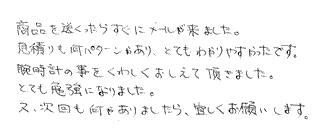 商品を送ったらすぐにメールが来ました。
見積りも何パターンかあり、とてもわかりやすかったです。
腕時計の事をくわしくおしえて頂きました。
とても勉強になりました。
又、次回も何かありましたら、宜しくお願いします。